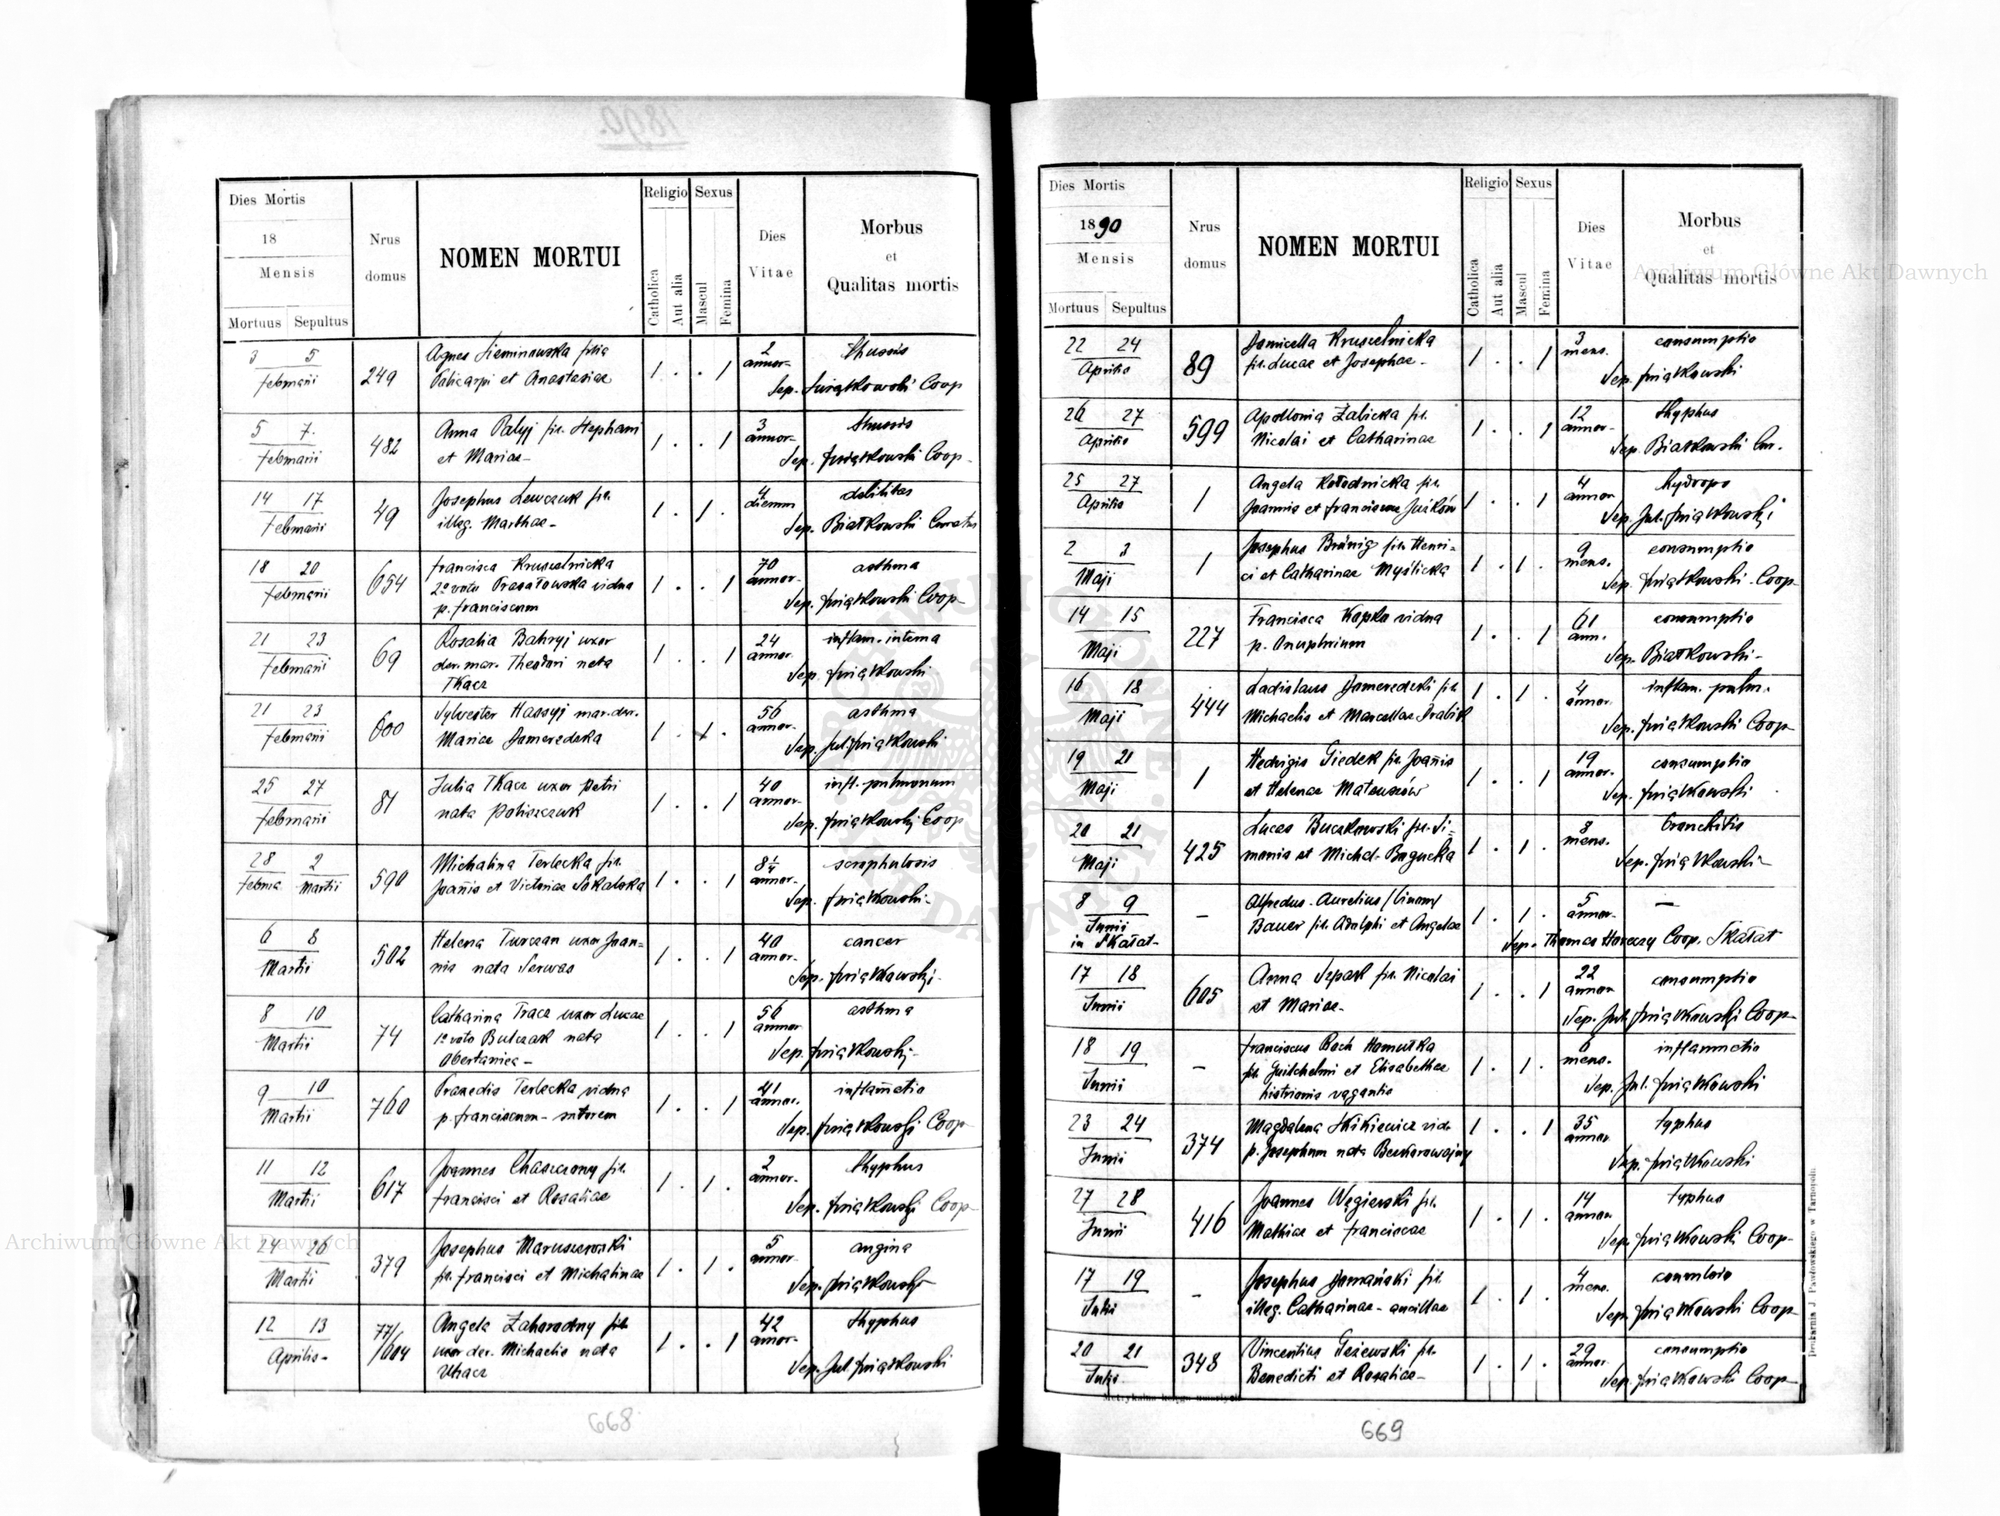 1890.
Dies Mortis
18
Mensis
Mortuus Sepultus
Nrus
domus
NOMEN MORTUI
Religio
Catholica
Aut alia
Sexus
Mascul
Femina
Dies
Vitae
Morbus
et
Qualitas mortis
3 5
Februarii
249
Agnes Sieminowska filia
Policarpi et Anastasiae
1 . . 1
2
annor-
thussis
Sep. Świątkowski Coop
5 7.
Februarii
482
Anna Palyj fil. Stephani
et Mariae-
1 . . 1
3
annor-
thussis
Sep. Świątkowski Coop-
14 17
Februarii
49
Josephus Lewczuk fil.
illeg. Marthae-
1 . 1 .
4
dierum
debilitas
Sep. Białkowski Curatus
18 20
Februarii
654
Francisca Kruszelnicka
2o voto Prasałowska vidua
p. Franciscum
1 . . 1
70
annor-
asthma
Sep. Świątkowski Coop-
21 23
Februarii
69
Rosalia Bahryj uxor
der. mar. Theodori nata
Tkacz
1 . . 1
24
annor
inflam. interna
Sep. Świątkowski
21 23
Februarii
600
Sylvester Hassyj mar. der.
Mariae Domeredzka
1 . 1 .
56
annor-
asthma
Sep. Jul. Świątkowski
25 27
Februarii
81
Julia Tkacz uxor Petri
nata Poliszczuk
1 . . 1
40
annor-
infl. pulmonum
Sep. Świątkowski Coop
28 2
Februa Martii
590
Michalina Terlecka fil.
Joannis et Victoriae Sokalska
1 . . 1
8 1/4
annor-
scrophulosis
Sep. Świątkowski-
6 8
Martii
502
Helena Turczan uxor Joan=
nis nata Serwas
1 . . 1
40
annor-
cancer
Sep. Świątkowski-
8 10
Martii
74
Catharina Tracz uxor Lucae
1o voto Bulczak nata
Obertaniec-
1 . . 1
56
annor
asthma
Sep. Świątkowski-
9 10
Martii
760
Praxedis Terlecka vidua
p. Franciscum - sutorem
1 . . 1
41
annor.
inflam̄atio
Sep. Świątkowski Coop-
11 12
Martii
617
Joannes Chaszczony fil.
Francisci et Rosaliae
1 . 1 .
2
annor.
thyphus
Sep. Świątkowski Coop-
24 26
Martii
379
Josephus Maruszewski
fil. Francisci et Michalinae
1 . 1 .
5
annor
angina
Sep. Świątkowski
12 13
Aprilis-
77/
/604
Angela Zahorodny
uxor der. Michaelis nata
Utracz
1 . . 1
42
annor-
thyphus
Sep. Jul. Świątkowski
668
Dies Mortis
1890
Mensis
Mortuus Sepultus
Nrus
domus
NOMEN MORTUI
Religio
Catholica
Aut alia
Sexus
Mascul
Femina
Dies
Vitae
Morbus
et
Qualitas mortis
22 24
Aprilis
89
Domicella Kruszelnicka
fil. Lucae et Josephae-
1 . . 1
3
mens.
consumptio
Sep. Świątkowski
26 27
Aprilis
599
Apollonia Zalicka fil.
Nicolai et Catharinae
1 . . 1
12
annor-
thyphus
Sep. Białkowski Cur.
25 27
Aprilis
1
Angela Kołodnicka fil.
Joannis et Franciscae Juśków
1 . . 1
4
annor
hydrops
Sep. Jul. Świątkowski
2 3
Maji
1
Josephus Brünig fil. Henri=
ci et Catharinae Myślicka
1 . 1 .
9
mens.
consumptio
Sep. Świątkowski - Coop-
14 15
Maji
227
Francisca Kopko vidua
p. Onuphrium
1 . . 1
61
ann.
consumptio
Sep. Białkowski-
16 18
Maji
444
Ladislaus Domeredzki fil.
Michaelis et Marcellae Drabik
1 . 1 .
4
annor
inflam. pulm.
Sep. Świątkowski Coop-
19 21
Maji
1
Hedvigis Giedek fil. Joan̄is
et Helenae Mateuszów
1 . . 1
19
annor.
consumptio
Sep. Świątkowski
20 21
Maji
425
Lucas Buczkowski fil. Si=
monis et Michal. Bogucka
1 . 1 .
8
mens.
bronchitis
Sep. Świątkowski-
8 9
Junii
in Skałat-
-
Alfredus - Aurelius
Bauer fil. Adolphi et Angelae
1 . 1 .
5
annor-
-
Sep. Thomas Coop. Skałat
17 18
Junii
605
Anna Szpak fil. Nicolai
et Mariae-
1 . . 1
22
annor
consumptio
Sep. Jul. Świątkowski Coop-
18 19
Junii
-
Franciscus Roch Homutka
fil. Guilhelmi et Elisabethae
histrionis vagantis
1 . 1 .
6
mens.
inflammatio
Sep. Jul. Świątkowski
23 24
Junii
374
Magdalena Skikiewicz vid.
p. Josephum nata Bezkorowajny
1 . . 1
35
annor
typhus
Sep. Świątkowski
27 28
Junii
416
Joannes Węgierski fil.
Mathiae et Franciscae
1 . 1 .
14
annor
typhus
Sep. Świątkowski Coop-
17 19
Julii
-
Josephus Domański fil.
illeg. Catharinae - ancillae
1 . 1 .
4
mens.
Sep. Świątkowski Coop-
20 21
Julii
348
Vincentius Geżewski fil.
Benedicti et Rosaliae-
1 . 1 .
29
annor
consumptio
Sep. Świątkowski Coop-
Drukarnia J. Pawłowskiego w Tarnopolu
669
Archiwum Główne Akt Dawnych
Archiwum Główne Akt Dawnych